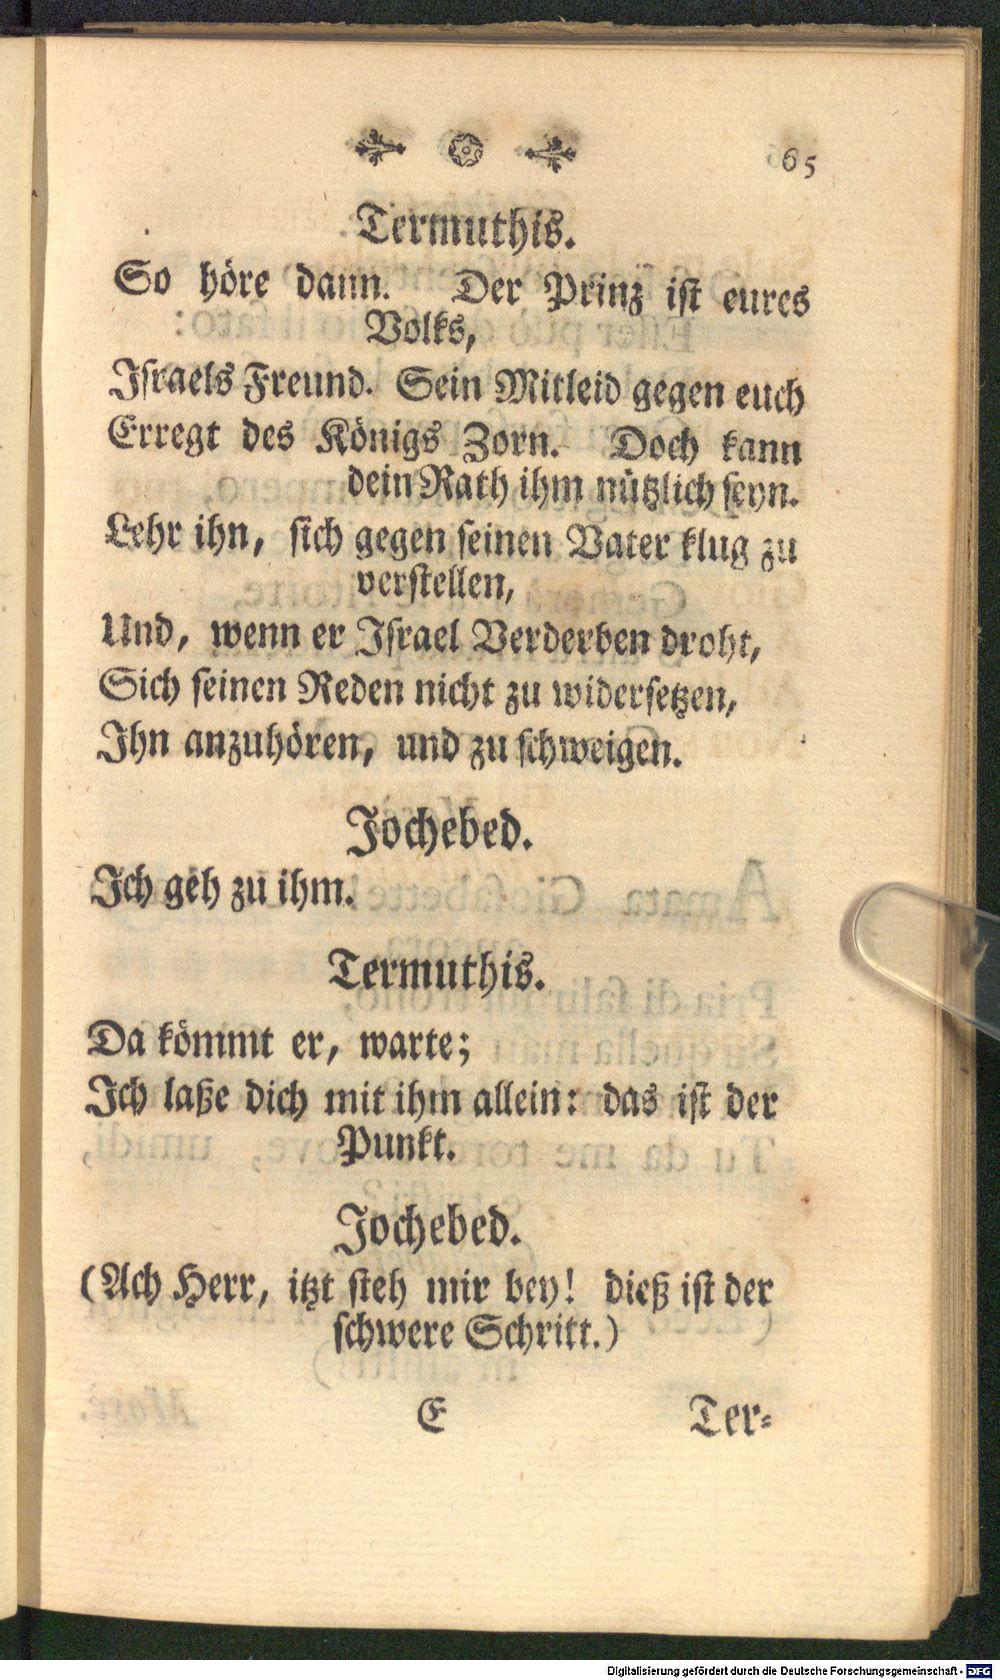 65
Termuthis.
So höre dann. Der Prinz ist eures
Volks,
Israels Freund. Sein Mitleid gegen euch
Erregt des Königs Zorn. Doch kann
dein Rath ihm nützlich seyn.
Lehr ihn, sich gegen seinen Vater klug zu
verstellen,
Und, wenn er Israel Verderben droht,
Sich seinen Reden nicht zu widersetzen,
Ihn anzuhören, und zu schweigen.
Jochebed.
Ich geh zu ihm.
Termuthis.
Da kömmt er, warte;
Ich laße dich mit ihm allein: das ist der
Punkt.
Jochebed.
(Ach Herr, itzt steh mir bey! dieß ist der
schwere Schritt.)
E Ter-
Digitalisierung gefördert durch die Deutsche Forschungsgemeinschaft - DFG